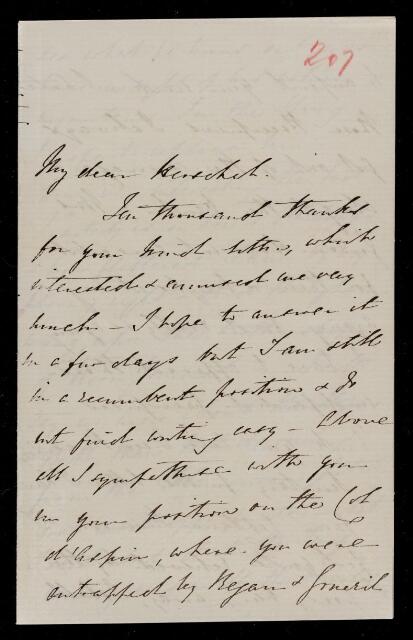 207
My dear Herschel.
Ten thousand thanks
for your kind letter, which
interested & amused me very
much - I hope to answer it
in a few days but I am still
in a recumbent position & do
not find writing easy - Above
all I sympathise with you
in your position on the Col
d'Aspin, where you were
entrapped by Began &